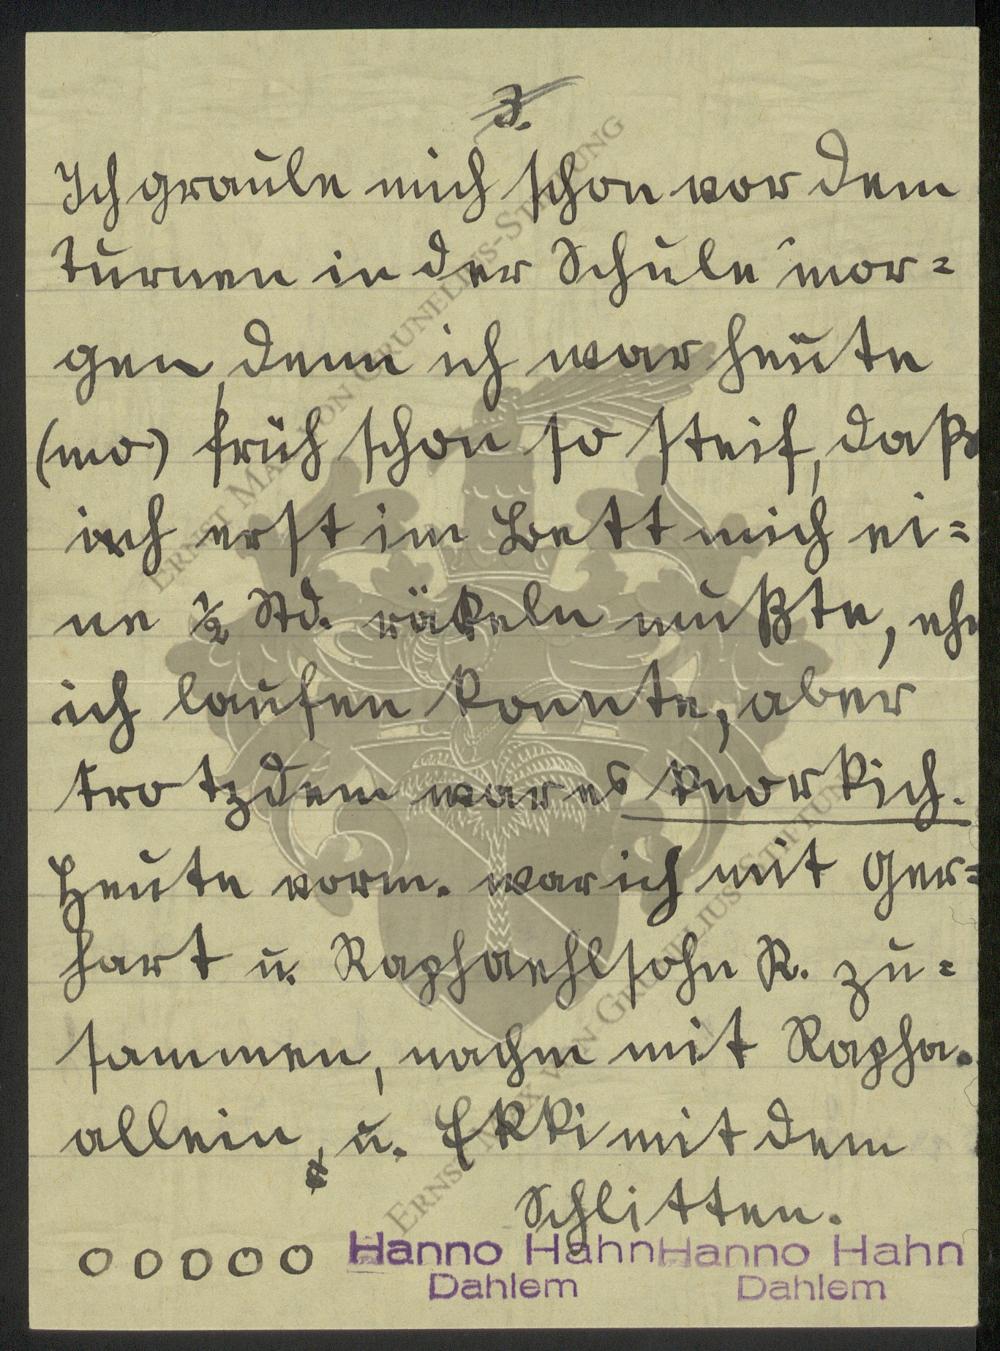 3.
Ich graule mich schon vor dem
Turnen in der Schule mor=
gen, denn ich war heute
(mo) früh schon so steif, daß
ich erst im Bett mich ei=
ne ½ Std. räkeln mußte, ehe
ich laufen konnte, aber
trotzdem war es knorkich.
Heute vorm. war ich mit Ger=
hart u. Raphaehlsohn R. zu=
sammen, nachm mit Rapha.
allein, u. Ekki mit dem
Schlitten.
ooooo Hanno Hahn Hanno Hahn
Dahlem Dahlem
ERNST MAX VON GRUNELIUS-STIFTUNG
ERNST MAX VON GRUNELIUS-STIFTUNG